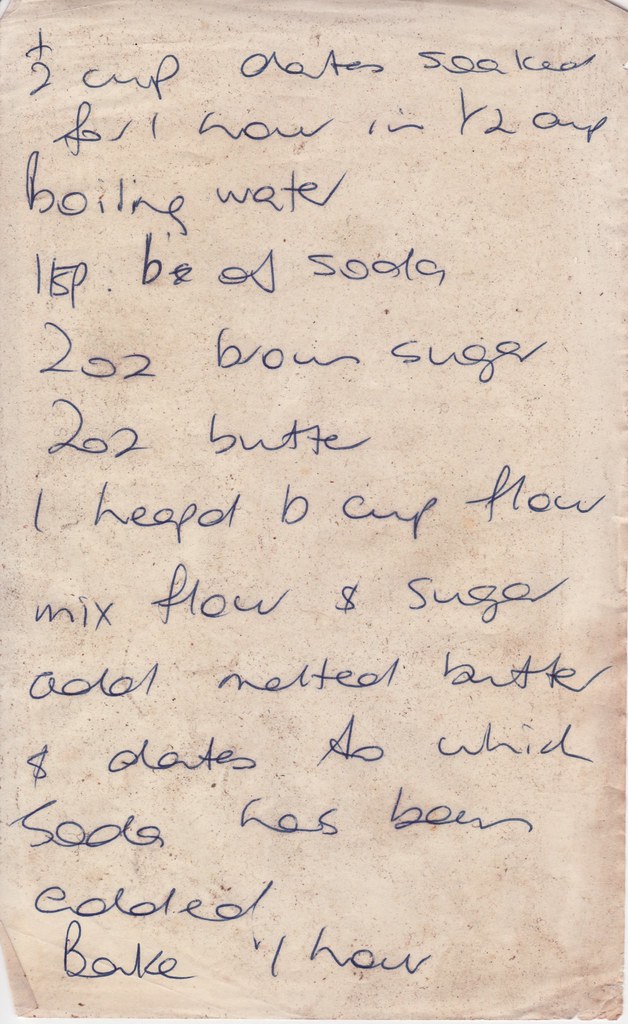 ½ cup dates soaked
for 1 hour in ½ cup
boiling water
1 tsp. b of soda
2oz brown sugar
2oz butter
1 heaped b cup flour
mix flour & sugar
add melted butter
& dates to which
soda has been
added
Bake 1 hour